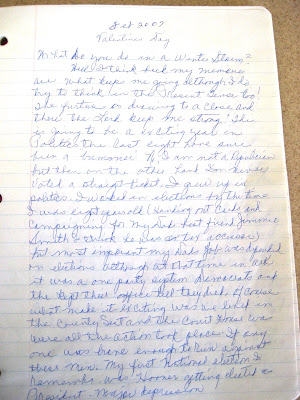 Feb 2007
Valentine Day
What do you do in a Winter Storm?
Well I think back my memories
are what keeps me going although I do
try to think in the Present tense too!
The future is drawing to a close and
then the Lord keep me strong. This
is going to be a exciting year in
Politics the last eight have sure
been a bummer. No I am not a Republican
but then on the other hand I've never
voted a straight ticket. I grew up in
politics. I worked in elections by the time
I was eight years old (handing out cards and
campaigning for my Dads best friend Jimmie
Smith I think he was so tax accessor)
but most important my Dads job was depended
on elections although at that time in Ark
it was a one party system Democrats and
the kept their office till they died. Of course
what made it exciting was we lived in
the County Seat and the Court House was
were all the action took place. If any
one was brave enough to run against
these men. My first National election I
remember was Hoover getting elected a
President - Major depression